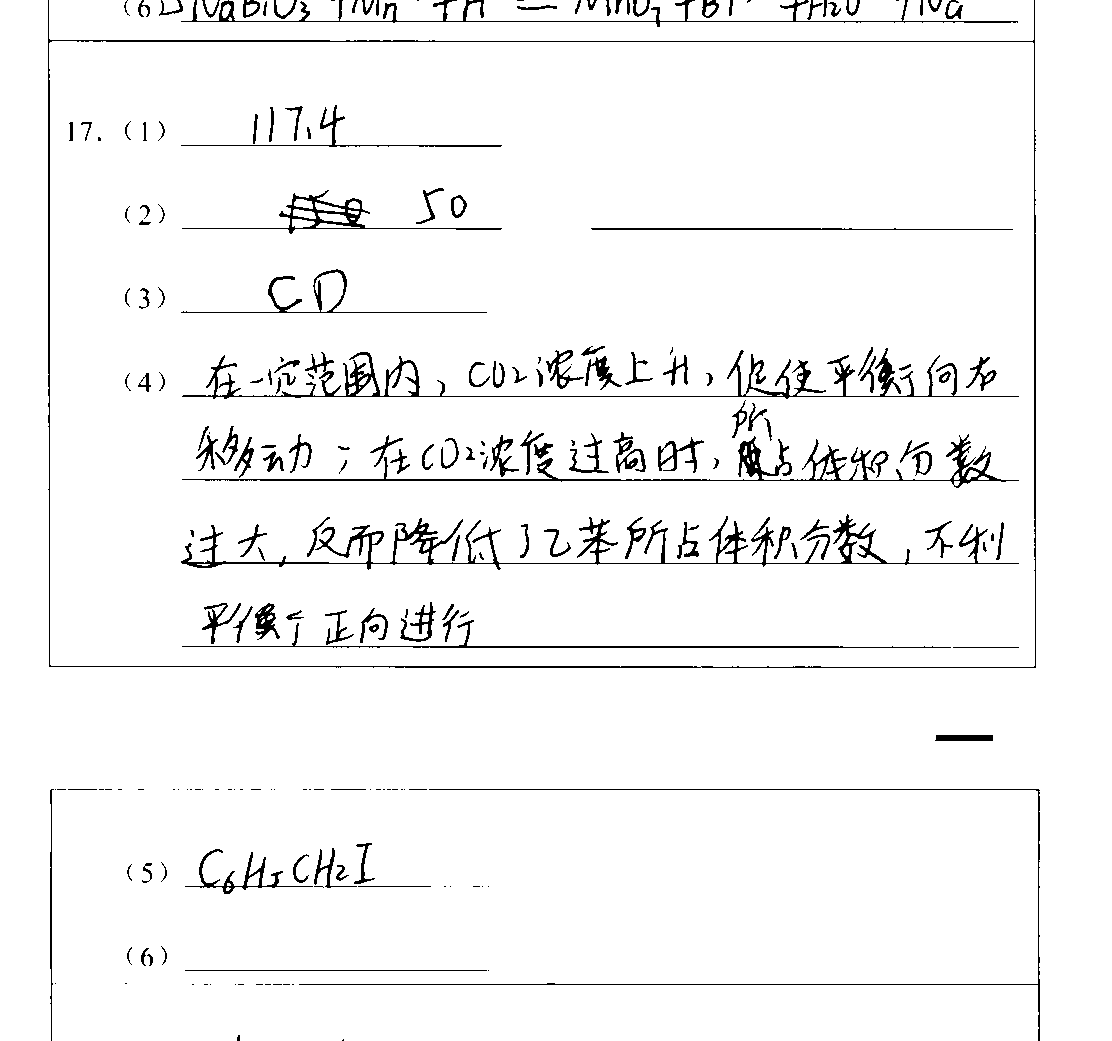 (6) 5NaBiO3 +Mn + +H = MnO4 +Bi +H2O +Na
17. (1) 117.4
(2) 50
(3) CD
(4) 在一定范围内，CO2浓度上升，促使平衡向右
移动；在CO2浓度过高时，所占体积分数
过大，反而降低了乙苯所占体积分数，不利
平衡正向进行
(5) C6H5CH2I
(6)